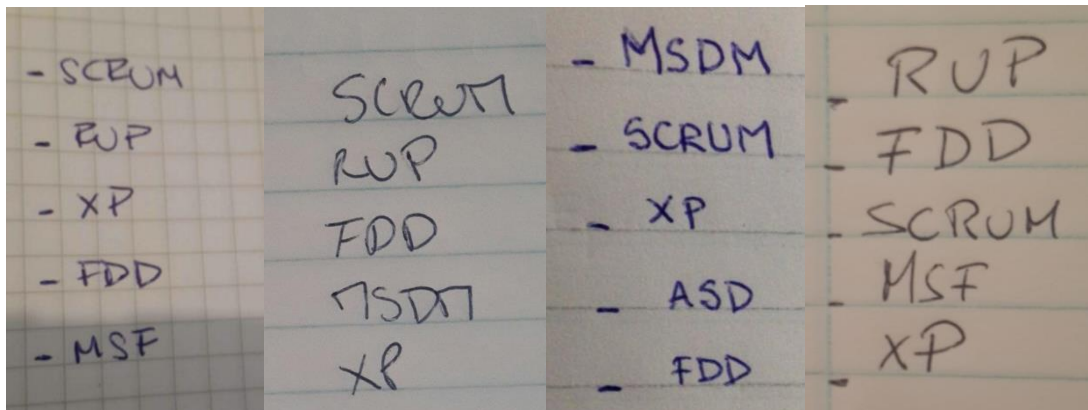 - SCRUM
- RUP
- XP
- FDD
- MSF
SCRUM
RUP
FDD
MSDM
XP
- MSDM
- SCRUM
- XP
- ASD
- FDD
- RUP
- FDD
- SCRUM
- MSF
- XP